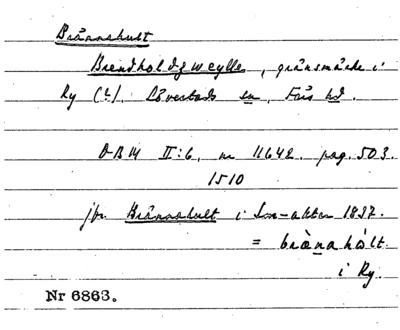 Brännahult
Brendholdz weylle, gränsmärke i
Ry (?). Lövestads sn, Färs hd.
DBM II:6, nr 11642. pag. 503.
1510
jfr Brännahult i Lm-akten 1837.
= bræ̀nahὰlt.
i Ry.
Nr 6863.